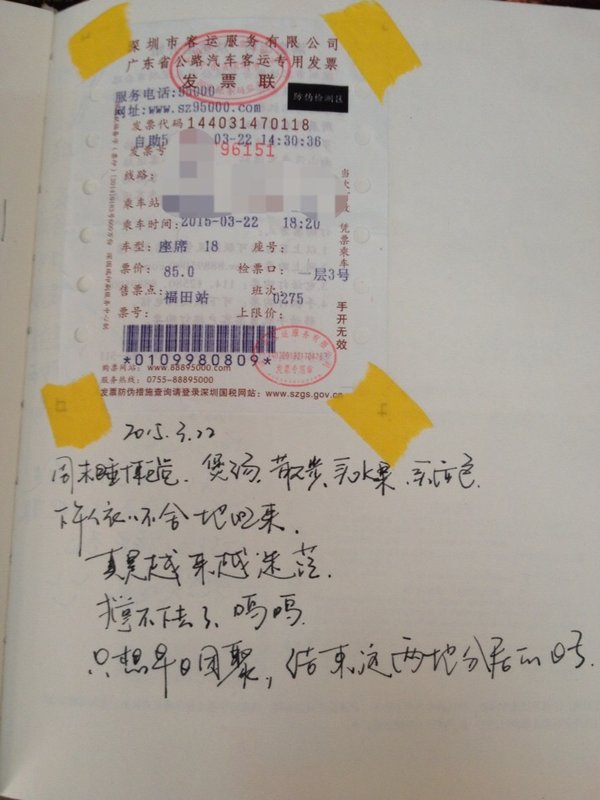 深圳市客运服务有限公司
广东省公路汽车客运专用发票
发票联
服务电话:95000
防伪检测区
网址:www.sz95000.com
发票代码144031470118
自助5 03-22 14:30:36
发票号 96151
线路:
乘车站
乘车时间:2015-03-22 18:20
车型:座席 18 座号:
票价:85.0 检票口:一层3号
售票点:福田站 班次:0275
票号: 上限价:
凭票乘车
手开无效
*0109980809*
购票网站:www.88895000.com
服务热线:0755-88895000
发票专用章
发票防伪措施查询请登录深圳国税网站:www.szgs.gov.cn
2015.3.22
周末睡懒觉、煲汤、散步、买水果、买
下午依依不舍地回来.
真是越来越迷茫.
撑不下去了呜呜.
只想早日团聚,结束这两地分居的日子.